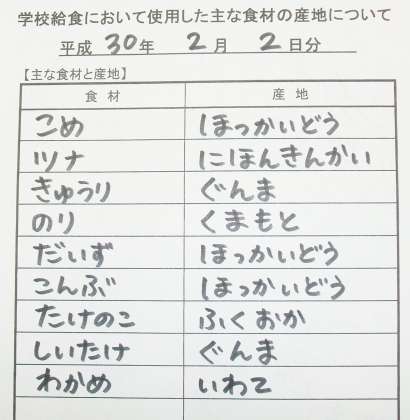 学校給食において使用した主な食材の産地について
平成 30年 2月 2日分
【主な食材と産地】
食材 産地
こめ ほっかいどう
ツナ にほんきんかい
きゅうり ぐんま
のり くまもと
だいず ほっかいどう
こんぶ ほっかいどう
たけのこ ふくおか
しいたけ ぐんま
わかめ いわて